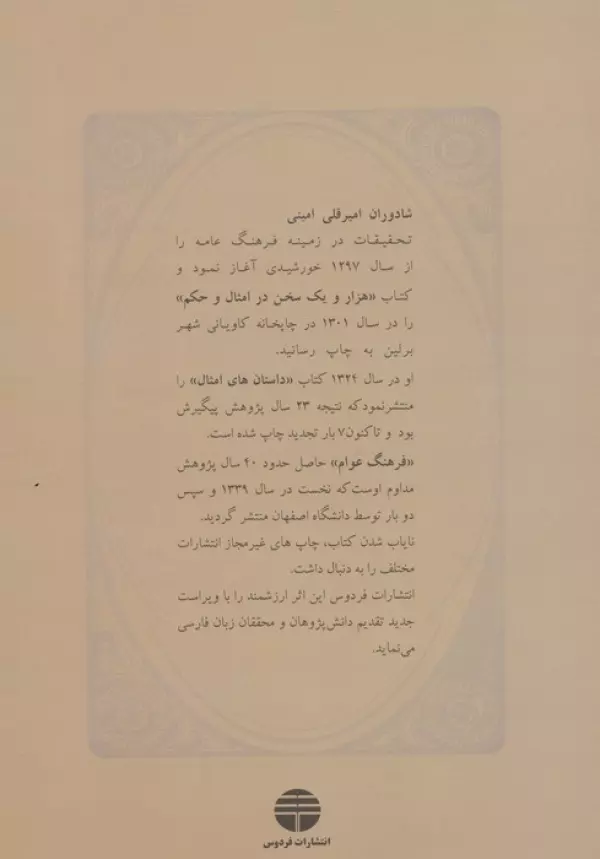 شادوران امیرقلی امینی
تحقیقات در زمینه فرهنگ عامه را
از سال ۱۲۹۷ خورشیدی آغاز نمود و
کتاب «هزار و یک سخن در امثال و حکم»
را در سال ۱۳۰۱ در چاپخانه کاویانی شهر
برلین به چاپ رسانید.
او در سال ۱۳۲۴ کتاب «داستان های امثال» را
منتشرنمودکه نتیجه ۲۳ سال پژوهش پیگیرش
بود و تاکنون۷ بار تجدید چاپ شده است.
«فرهنگ عوام» حاصل حدود ۴۰ سال پژوهش
مداوم اوست‌که نخست در سال ۱۳۳۹ و سپس
دو بار توسط دانشگاه اصفهان منتشر گردید.
نایاب شدن کتاب، چاپ های غیرمجاز انتشارات
مختلف را به دنبال داشت.
انتشارات فردوس این اثر ارزشمند را با ویراست
جدید تقدیم دانش‌پژوهان و محققان زبان فارسی
می‌نماید.
انتشارات فردوس